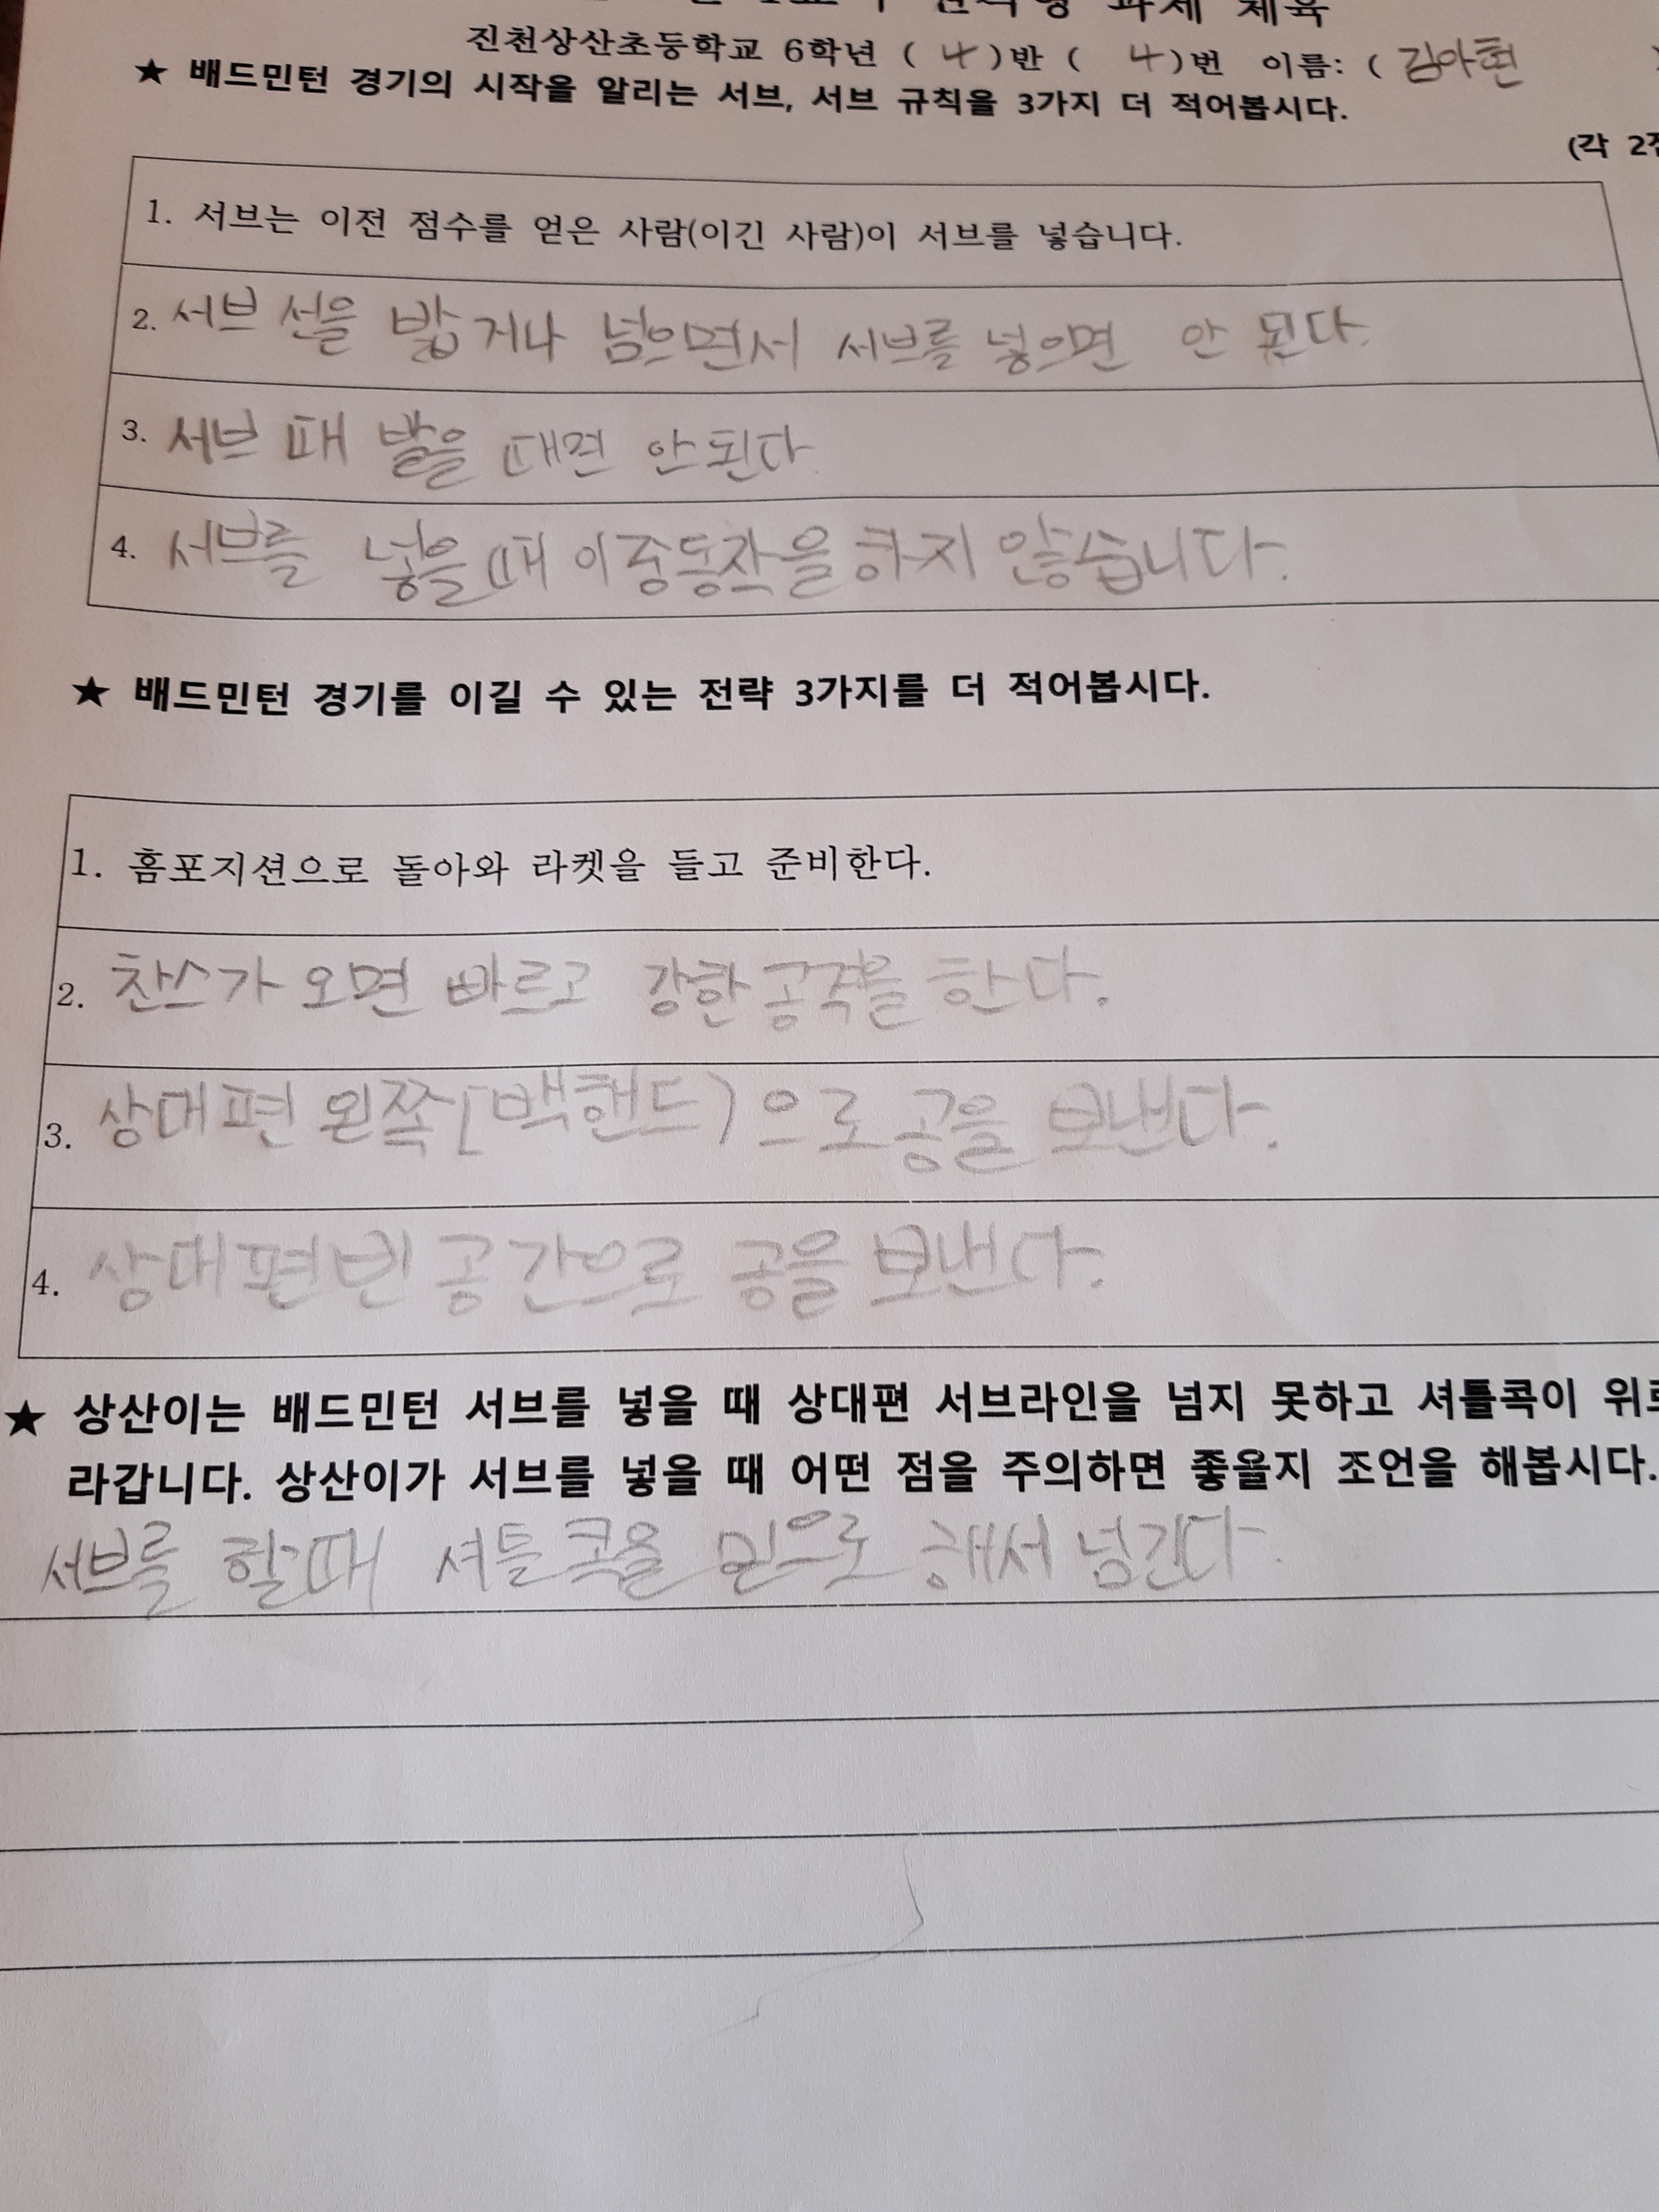 과제 체육
진천상산초등학교 6학년 ( 4 )반 ( 4 )번 이름: ( 김아현 )
★ 배드민턴 경기의 시작을 알리는 서브, 서브 규칙을 3가지 더 적어봅시다.
(각 2점
1. 서브는 이전 점수를 얻은 사람(이긴 사람)이 서브를 넣습니다.
2. 서브 선을 밟거나 넘으면서 서브를 넣으면 안 된다.
3. 서브 때 발을 떼면 안된다
4. 서브를 넣을때 이중동작을 하지 않습니다.
★ 배드민턴 경기를 이길 수 있는 전략 3가지를 더 적어봅시다.
1. 홈포지션으로 돌아와 라켓을 들고 준비한다.
2. 찬스가 오면 빠르고 강한 공격을 한다.
3. 상대편 왼쪽(백핸드)으로 공을 보낸다.
4. 상대편 빈 공간으로 공을 보낸다.
★ 상산이는 배드민턴 서브를 넣을 때 상대편 서브라인을 넘지 못하고 셔틀콕이 위로
라갑니다. 상산이가 서브를 넣을 때 어떤 점을 주의하면 좋을지 조언을 해봅시다.
서브를 할때 셔틀콕을 믿으로 해서 넘긴다.